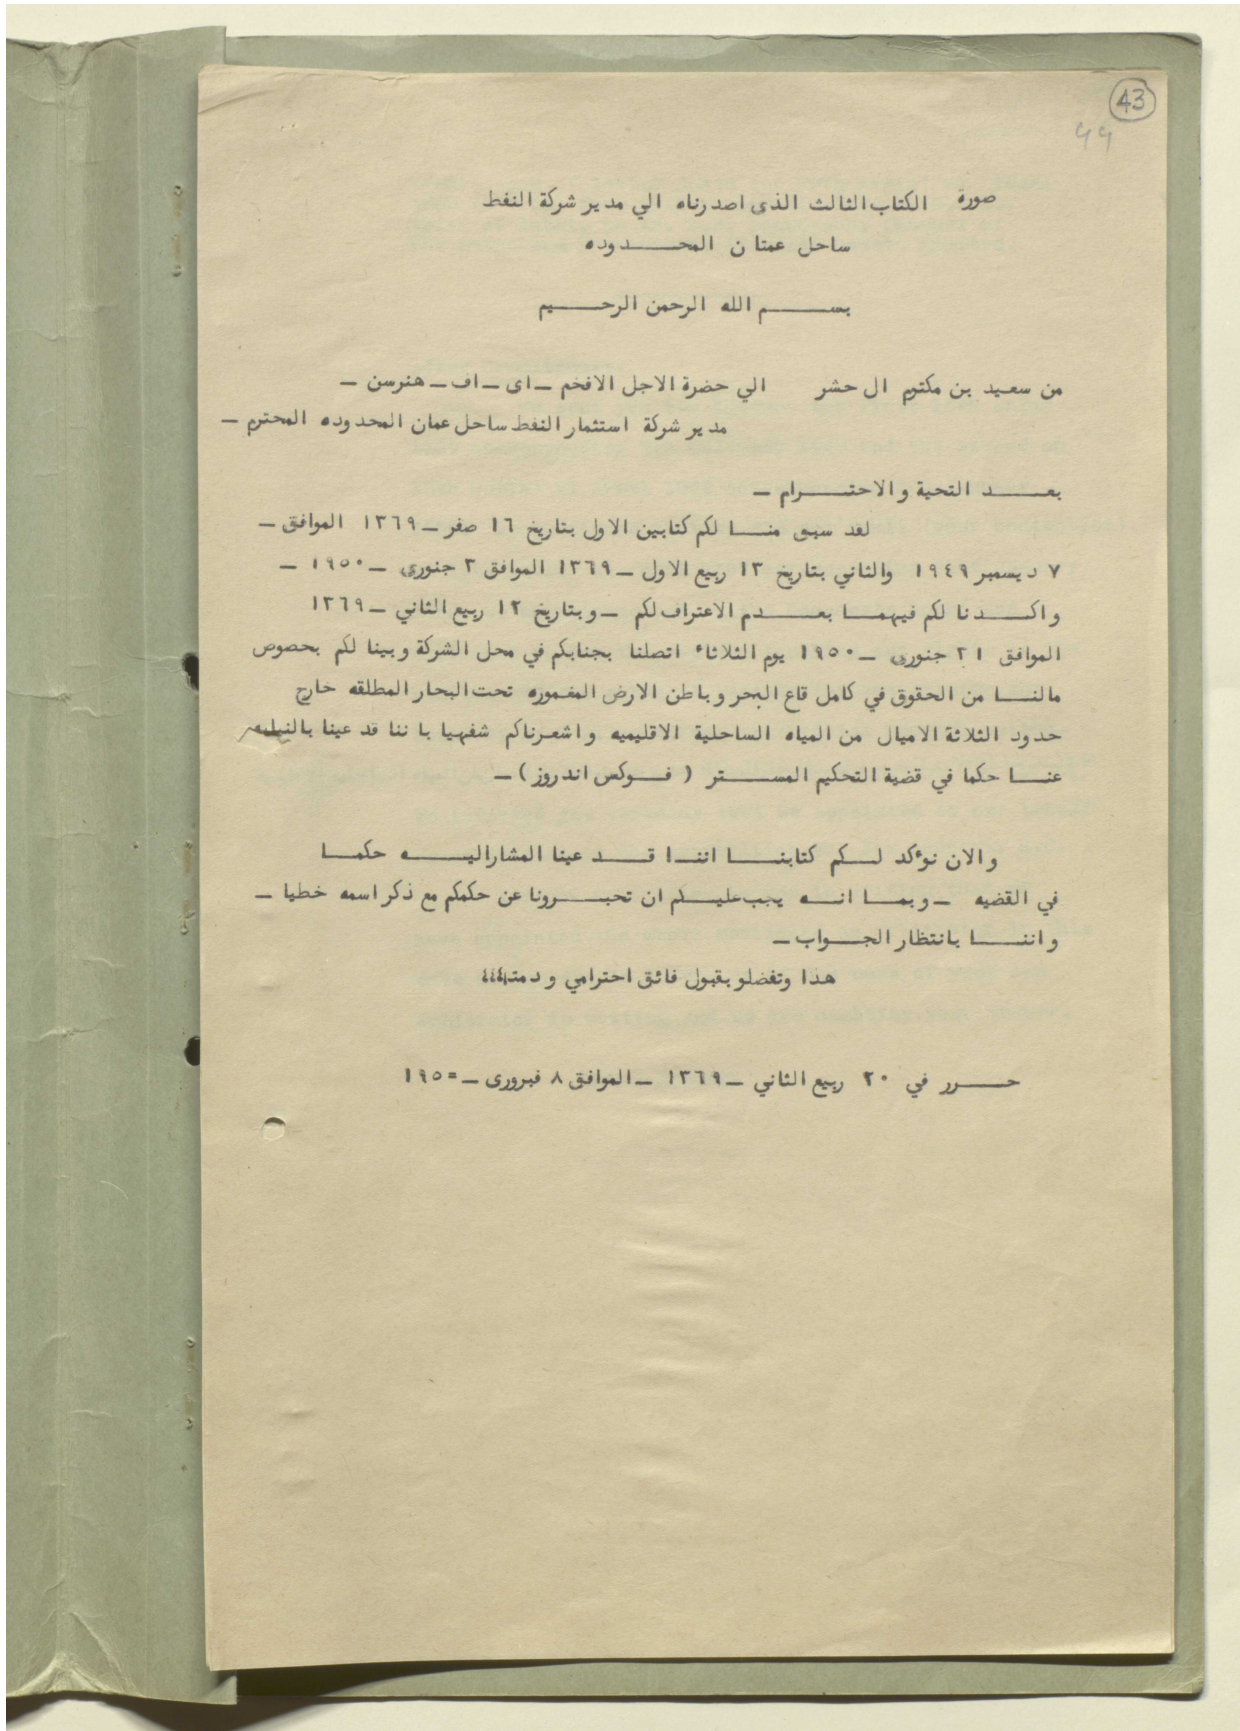 43
44
صورة الكتاب الثالث الذى اصدرناه الي مدير شركة النفط
ساحل عمتان المحدوده
بسم الله الرحمن الرحيم
من سعيد بن مكتوم ال حشر الي حضرة الاجل الافخم - اى - اف - هنرسن -
مدير شركة استثمار النفط ساحل عمان المحدوده المحترم -
بعد التحية والاحترام -
لقد سبق منا لكم كتابين الاول بتاريخ ١٦ صفر - ١٣٦٩ الموافق -
٧ ديسمبر ١٩٤٩ والثاني بتاريخ ١٣ ربيع الاول - ١٣٦٩ الموافق ٣ جنورى - ١٩٥٠ -
واكدنا لكم فيهما بعدم الاعتراف لكم - وبتاريخ ١٢ ربيع الثاني - ١٣٦٩
الموافق ٣١ جنورى - ١٩٥٠ يوم الثلاثاء اتصلنا بجنابكم في محل الشركة وبينا لكم بخصوص
مالنا من الحقوق في كامل قاع البحر وباطن الارض المغموره تحت البحار المطلقه خارج
حدود الثلاثة الاميال من المياه الساحلية الاقليميه واشعرناكم شفهيا باننا قد عينا بالنيابه
عنا حكما في قضية التحكيم المستر ( فوكس اندروز ) -
والان نوءكد لكم كتابنا اننا قد عينا المشاراليه حكما
في القضيه - وبما انه يجب عليكم ان تخبرونا عن حكمكم مع ذكر اسمه خطيا -
واننا بانتظار الجواب -
هذا وتفضلو بقبول فائق احترامي ودمتم
حرر في ٢٠ ربيع الثاني - ١٣٦٩ - الموافق ٨ فبرورى - ١٩٥٠